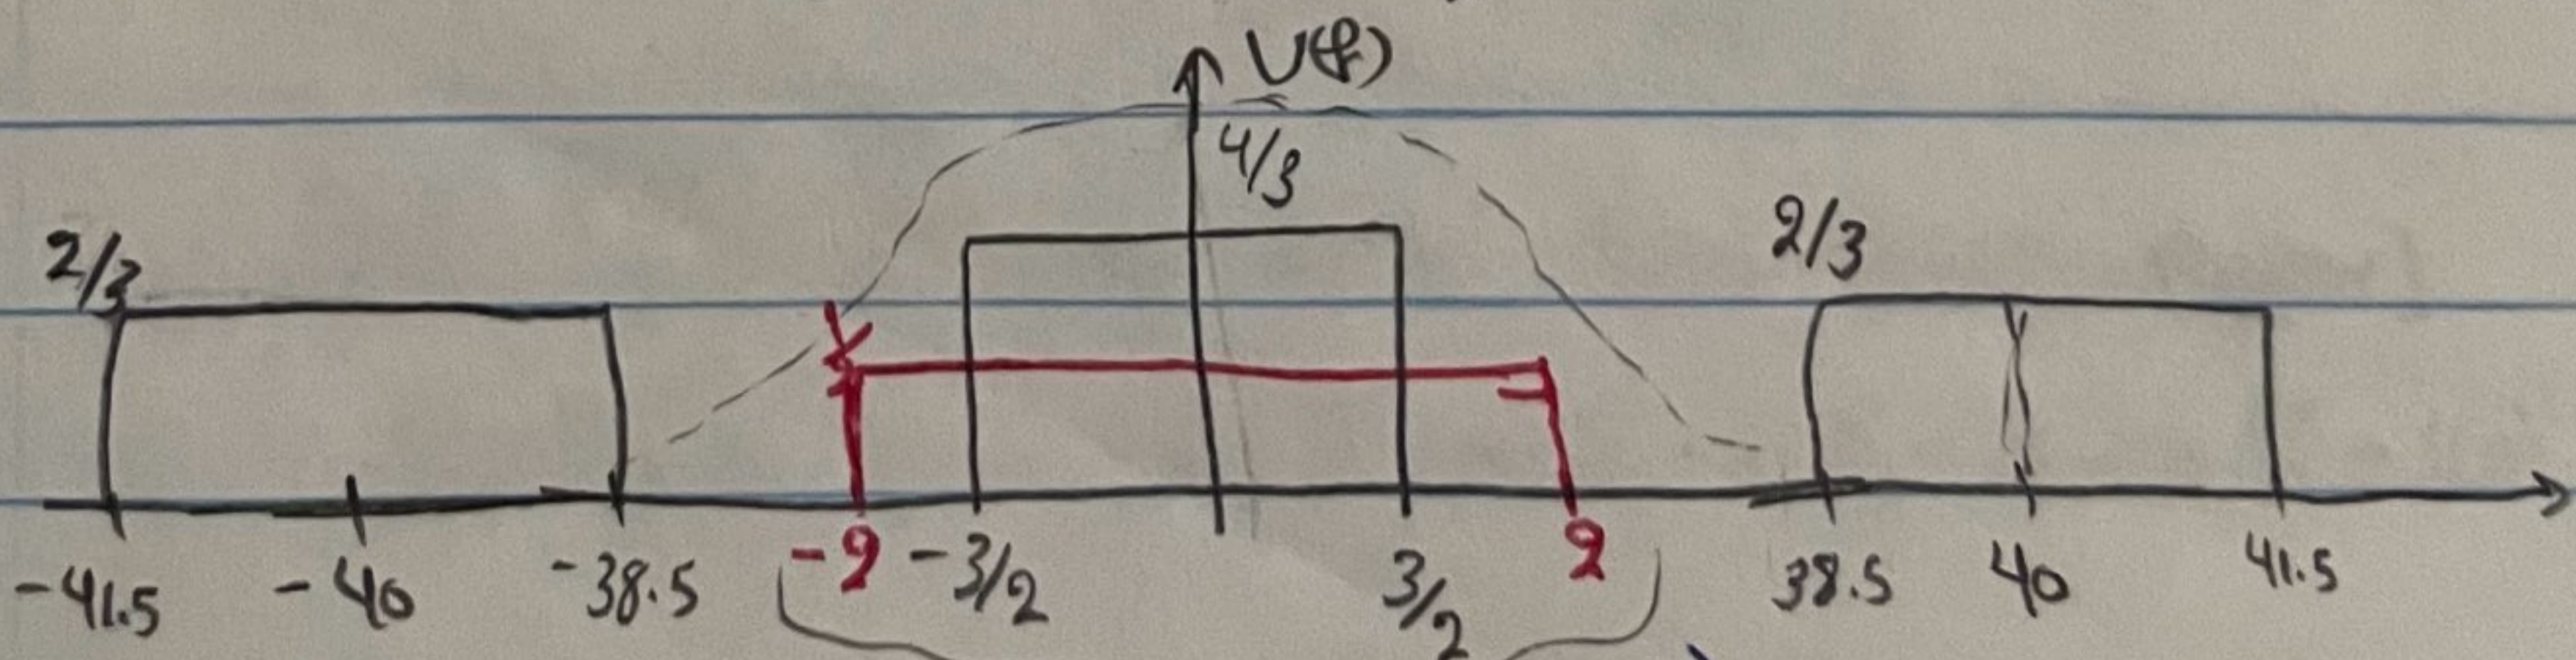 U(f)
4/3
2/3
2/3
-41.5 -40 -38.5 -2 -3/2 3/2 2 38.5 40 41.5